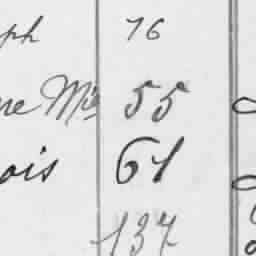 ph 76
ne Mie 55
ois 61
137